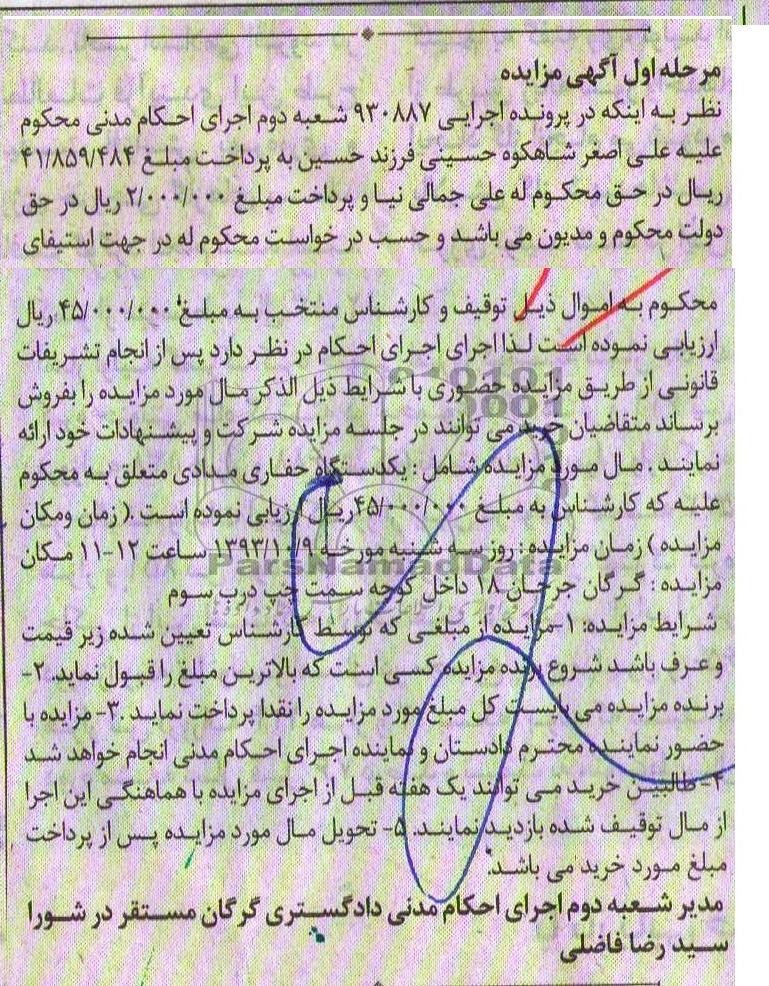 مرحله اول آگهی مزایده
نظر به اینکه در پرونده اجرایی ۹۳۰۸۸۷ شعبه دوم اجرای احکام مدنی محکوم
علیه علی اصغر شاهکوه حسینی فرزند حسین به پرداخت مبلغ ۴۱/۸۵۹/۴۸۴
ریال در حق محکوم له علی جمالی نیا و پرداخت مبلغ ۲/۰۰۰/۰۰۰ ریال در حق
دولت محکوم و مدیون می باشد و حسب در خواست محکوم له در جهت استیفای
محکوم به اموال ذیل توقیف و کارشناس منتخب به مبلغ ۴۵/۰۰۰/۰۰۰ ریال
ارزیابی نموده است لذا اجرای اجرای احکام در نظر دارد پس از انجام تشریفات
قانونی از طریق مزایده حضوری با شرایط ذیل الذکر مال مورد مزایده را بفروش
برساند متقاضیان خرید می توانند در جلسه مزایده شرکت و پیشنهادات خود ارائه
نمایند . مال مورد مزایده شامل : یکدستگاه حفاری مدادی متعلق به محکوم
علیه که کارشناس به مبلغ ۴۵/۰۰۰/۰۰۰ ریال ارزیابی نموده است .( زمان ومکان
مزایده ) زمان مزایده : روز سه شنبه مورخه ۱۳۹۳/۱۰/۹ ساعت ۱۲-۱۱ مکان
مزایده : گرگان جرجان ۱۸ داخل کوچه سمت چپ درب سوم
شرایط مزایده: ۱-مزایده از مبلغی که توسط کارشناس تعیین شده زیر قیمت
و عرف باشد شروع برنده مزایده کسی است که بالاترین مبلغ را قبول نماید. ۲-
برنده مزایده می بایست کل مبلغ مورد مزایده را نقدا پرداخت نماید .۳- مزایده با
حضور نماینده محترم دادستان و نماینده اجرای احکام مدنی انجام خواهد شد
۴- طالبین خرید می توانند یک هفته قبل از اجرای مزایده با هماهنگی این اجرا
از مال توقیف شده بازدید نمایند. ۵- تحویل مال مورد مزایده پس از پرداخت
مبلغ مورد خرید می باشد.
مدیر شعبه دوم اجرای احکام مدنی دادگستری گرگان مستقر در شورا
سید رضا فاضلی
ParsNamadData